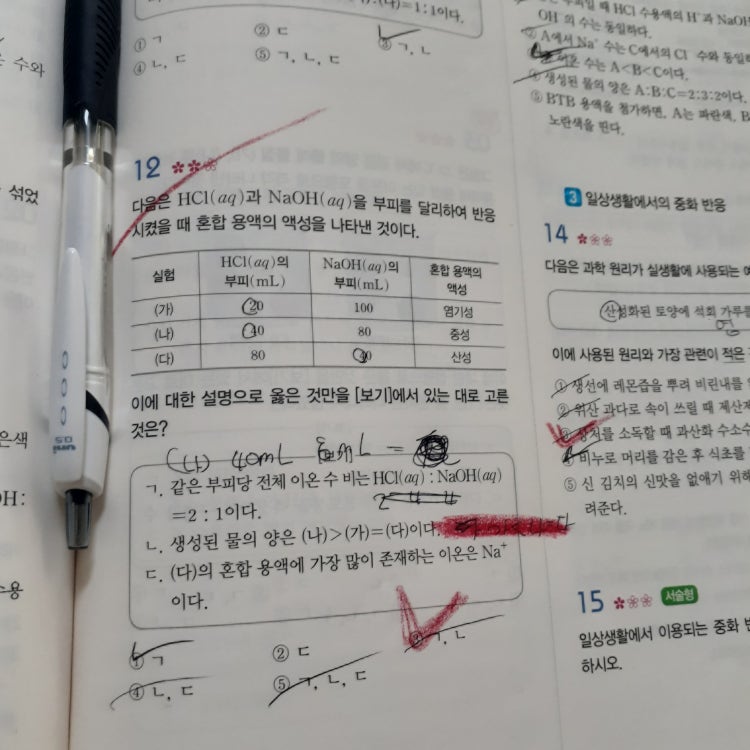 :(나)=1:1이다.
① ㄱ
② ㄷ
③ ㄱ, ㄴ
④ ㄴ, ㄷ
⑤ ㄱ, ㄴ, ㄷ
12
다음은 HCl(aq)과 NaOH(aq)을 부피를 달리하여 반응
시켰을 때 혼합 용액의 액성을 나타낸 것이다.
실험
HCl(aq)의 부피(mL)
NaOH(aq)의 부피(mL)
혼합 용액의 액성
(가) 20 100 염기성
(나) 40 80 중성
(다) 80 40 산성
이에 대한 설명으로 옳은 것만을 [보기]에서 있는 대로 고른
것은?
(나) 40mL 80mL =
ㄱ. 같은 부피당 전체 이온 수 비는 HCl(aq) : NaOH(aq)
=2 : 1이다.
2 4 4
ㄴ. 생성된 물의 양은 (나)>(가)=(다)이다.
ㄷ. (다)의 혼합 용액에 가장 많이 존재하는 이온은 Na⁺
이다.
① ㄱ
② ㄷ
③ ㄱ, ㄴ
④ ㄴ, ㄷ
⑤ ㄱ, ㄴ, ㄷ
수와
섞었
은색
OH:
수용
부피일 때 HCl 수용액의 H⁺과 NaOH
OH⁻의 수는 동일하다.
② A에서 Na⁺ 수는 C에서의 Cl⁻ 수와 동일하
이온 수는 A<B<C이다.
④ 생성된 물의 양은 A:B:C=2:3:2이다.
⑤ BTB 용액을 첨가하면, A는 파란색, B
노란색을 띤다.
3 일상생활에서의 중화 반응
14
다음은 과학 원리가 실생활에 사용되는 예
산성화된 토양에 석회 가루를
염
이에 사용된 원리와 가장 관련이 적은
① 생선에 레몬즙을 뿌려 비린내를
② 위산 과다로 속이 쓰릴 때 제산제
③ 상처를 소독할 때 과산화 수소수
④ 비누로 머리를 감은 후 식초를
⑤ 신 김치의 신맛을 없애기 위해
려준다.
15 서술형
일상생활에서 이용되는 중화 반
하시오.